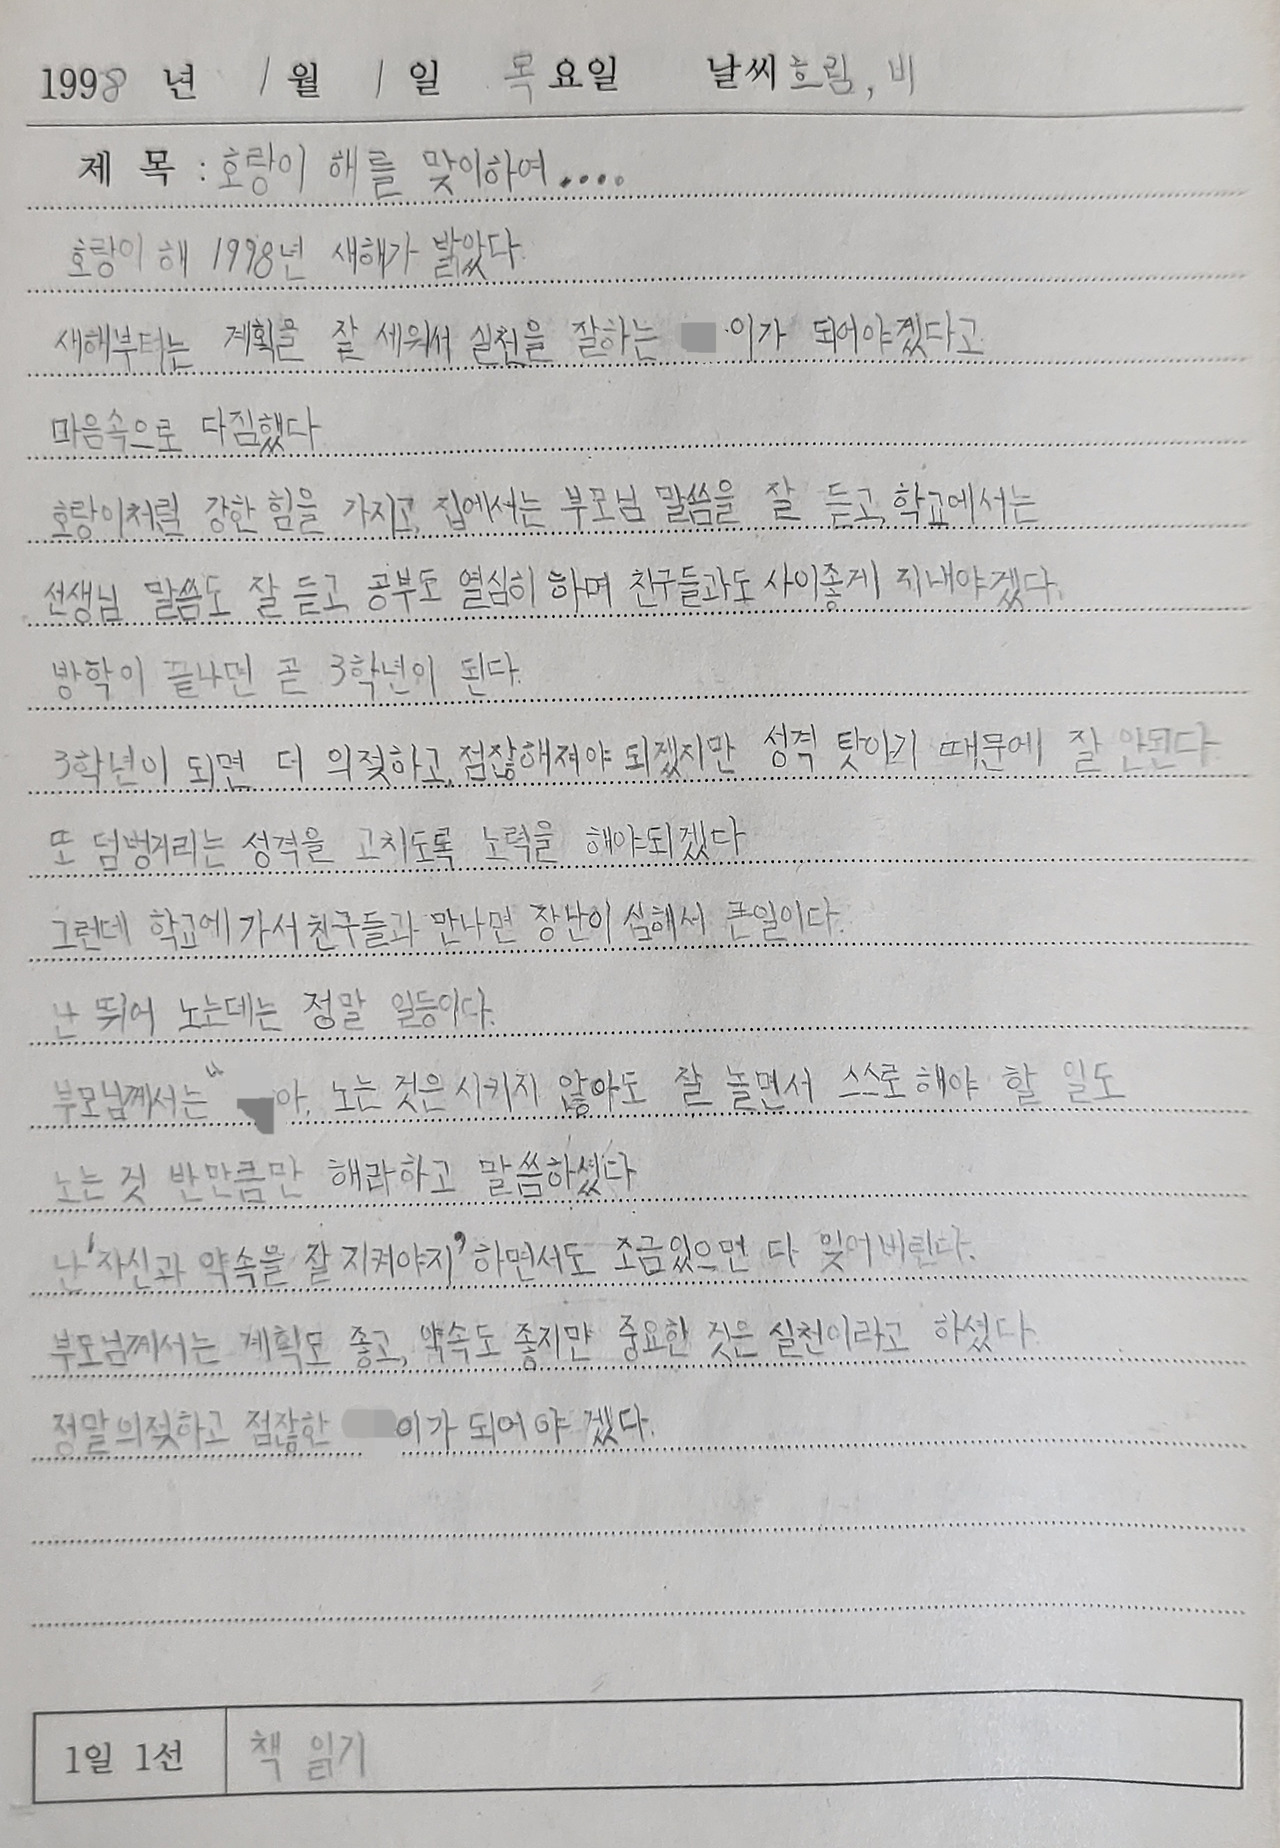 1998 년 1 월 1 일 목요일 날씨 흐림, 비
제 목 : 호랑이 해를 맞이하여....
호랑이 해 1998년 새해가 밝았다.
새해부터는 계획을 잘 세워서 실천을 잘하는 이가 되어야겠다고
마음속으로 다짐했다
호랑이처럼 강한 힘을 가지고, 집에서는 부모님 말씀을 잘 듣고, 학교에서는
선생님 말씀도 잘 듣고, 공부도 열심히 하며 친구들과도 사이좋게 지내야겠다.
방학이 끝나면 곧 3학년이 된다.
3학년이 되면 더 의젖하고, 점잖해져야 되겠지만 성격 탓이기 때문에 잘 안된다
또 덤벙거리는 성격을 고치도록 노력을 해야되겠다
그런데 학교에 가서 친구들과 만나면 장난이 심해서 큰일이다.
난 뛰어 노는데는 정말 일등이다.
부모님께서는 "아, 노는 것은 시키지 않아도 잘 놀면서 스스로 해야 할 일도
노는 것 반만큼만 해라하고 말씀하셨다
난 '자신과 약속을 잘 지켜야지' 하면서도 조금있으면 다 잊어버린다.
부모님께서는 계획도 좋고, 약속도 좋지만 중요한 것은 실천이라고 하셨다.
정말 의젖하고 점잖한 이가 되어야 겠다.
1일 1선 책 읽기